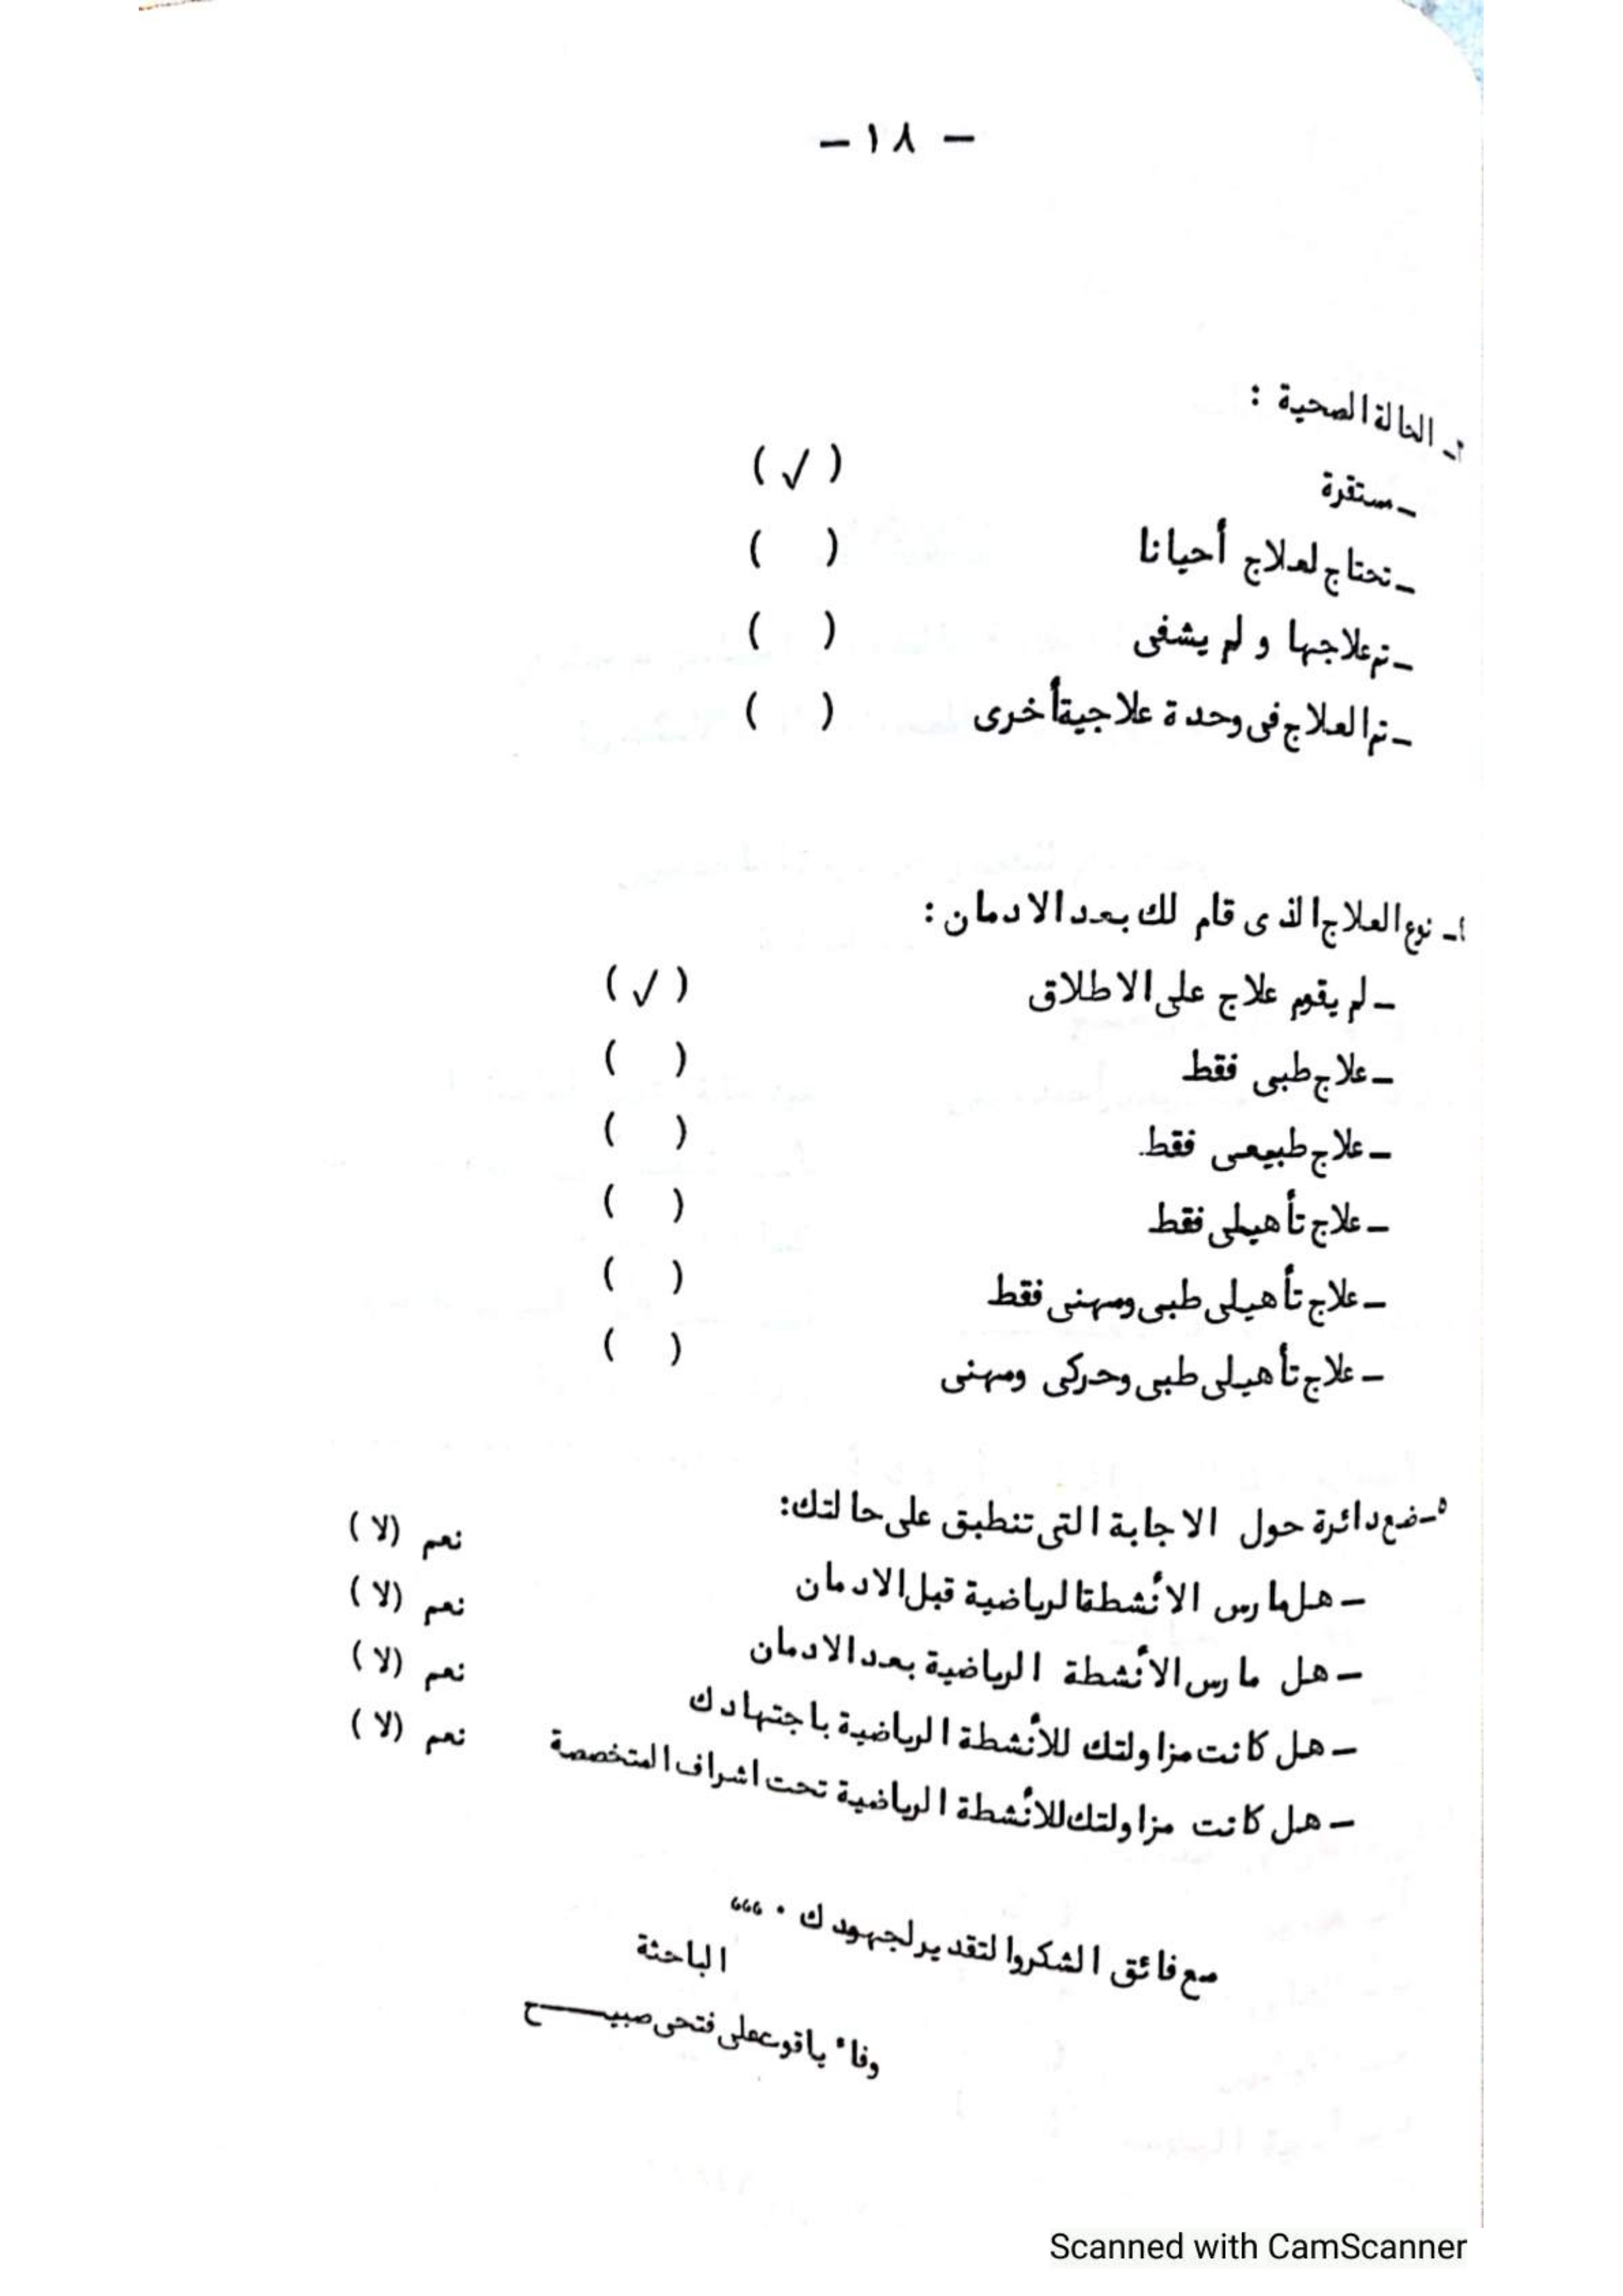 - ١٨ -
٣ـ الحالة الصحية :
ـ مستقرة ( √ )
ـ تحتاج لعلاج أحيانا ( )
ـ تم علاجها و لم يشفى ( )
ـ تم العلاج فى وحدة علاجية أخرى ( )
ـ نوع العلاج الذى قام لك بعد الادمان :
ـ لم يقوم علاج على الاطلاق ( √ )
ـ علاج طبى فقط ( )
ـ علاج طبيعى فقط ( )
ـ علاج تأهيلى فقط ( )
ـ علاج تأهيلى طبى ومهنى فقط ( )
ـ علاج تأهيلى طبى وحركى ومهنى ( )
٥ـ ضع دائرة حول الاجابة التى تنطبق على حالتك:
ـ هل مارس الأنشطة الرياضية قبل الادمان نعم (لا )
ـ هل مارس الأنشطة الرياضية بعد الادمان نعم (لا )
ـ هل كانت مزاولتك للأنشطة الرياضية باجتهادك نعم (لا )
ـ هل كانت مزاولتك للأنشطة الرياضية تحت اشراف المتخصصة نعم (لا )
مع فائق الشكر والتقدير لجهودك . ،،،
الباحثة
وفاء ياقوت على فتحى صبيـــح
Scanned with CamScanner